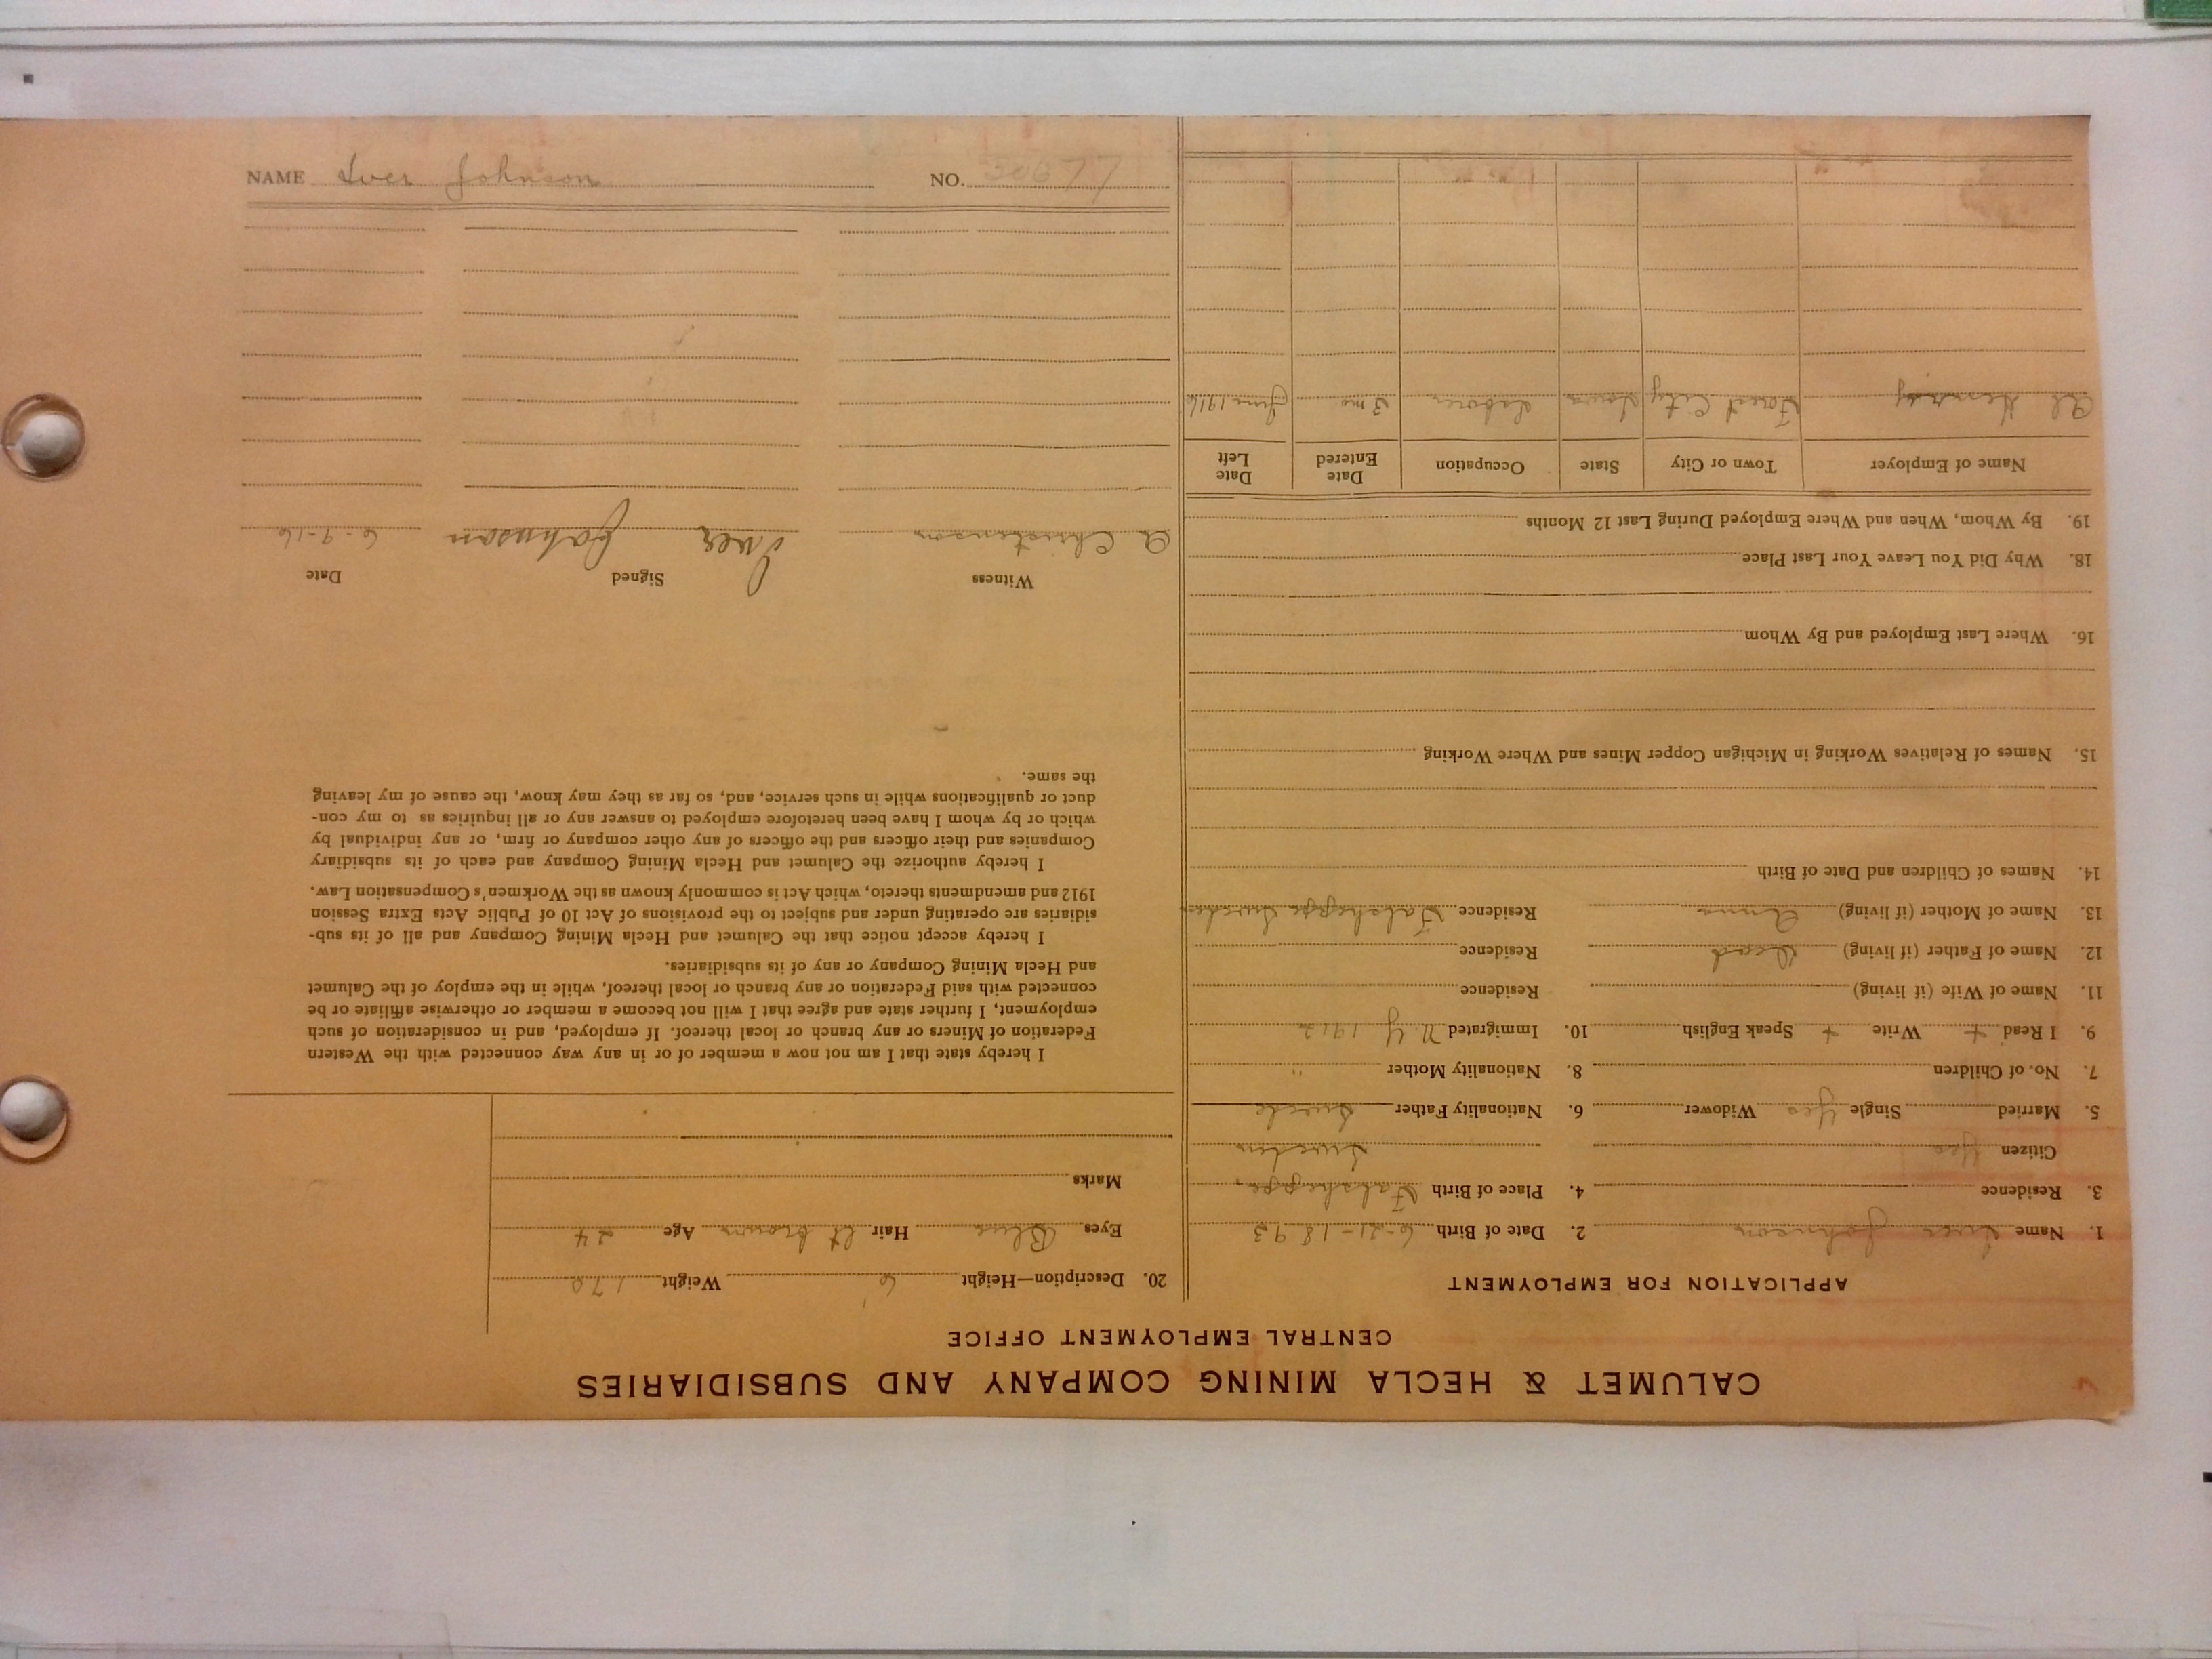 CALUMET & HECLA MINING COMPANY AND SUBSIDIARIES
CENTRAL EMPLOYMENT OFFICE
APPLICATION FOR EMPLOYMENT
1. Name Iver Johnson 2. Date of Birth 6-21-1893
3. Residence 4. Place of Birth
Citizen Yes Sweden
5. Married Single Yes Widower 6. Nationality Father Swede
7. No. of Children 8. Nationality Mother "
9. I Read + Write + Speak English 10. Immigrated N Y 1912
11. Name of Wife (if living) Residence
12. Name of Father (if living) Dead Residence
13. Name of Mother (if living) Anna Residence Sweden
14. Names of Children and Date of Birth
15. Names of Relatives Working in Michigan Copper Mines and Where Working
16. Where Last Employed and By Whom
18. Why Did You Leave Your Last Place
19. By Whom, When and Where Employed During Last 12 Months
Name of Employer Town or City State Occupation Date Entered Date Left
Forest City Iowa Laborer 3 mo June 1916
20. Description—Height 6' Weight 170
Eyes Blue Hair lt brown Age 24
Marks
I hereby state that I am not now a member of or in any way connected with the Western
Federation of Miners or any branch or local thereof. If employed, and in consideration of such
employment, I further state and agree that I will not become a member or otherwise affiliate or be
connected with said Federation or any branch or local thereof, while in the employ of the Calumet
and Hecla Mining Company or any of its subsidiaries.
I hereby accept notice that the Calumet and Hecla Mining Company and all of its sub-
sidiaries are operating under and subject to the provisions of Act 10 of Public Acts Extra Session
1912 and amendments thereto, which Act is commonly known as the Workmen's Compensation Law.
I hereby authorize the Calumet and Hecla Mining Company and each of its subsidiary
Companies and their officers and the officers of any other company or firm, or any individual by
which or by whom I have been heretofore employed to answer any or all inquiries as to my con-
duct or qualifications while in such service, and, so far as they may know, the cause of my leaving
the same.
Witness Signed Date
A Christenson Iver Johnson 6-9-16
NAME Iver Johnson NO. 30677